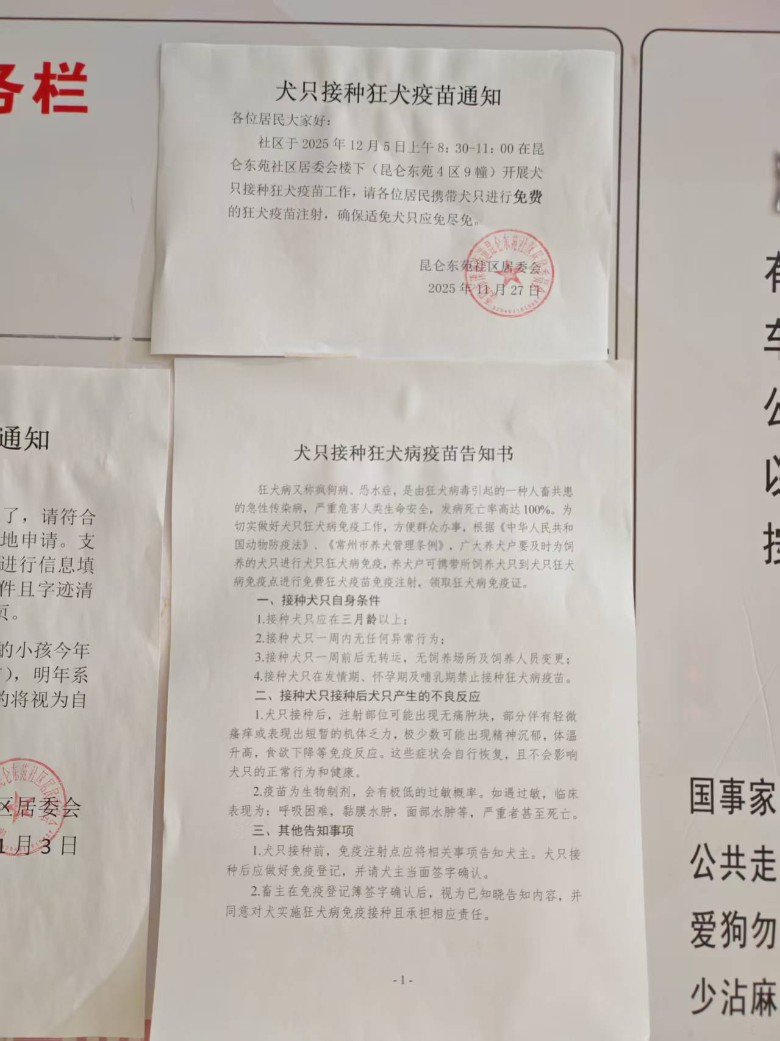 务栏
犬只接种狂犬疫苗通知
各位居民大家好：
社区于 2025 年 12 月 5 日上午 8：30-11：00 在昆
仑东苑社区居委会楼下（昆仑东苑 4 区 9 幢）开展犬
只接种狂犬疫苗工作，请各位居民携带犬只进行免费
的狂犬疫苗注射，确保适免犬只应免尽免。
昆仑东苑社区居委会
2025 年 11 月 27 日
通知
了，请符合
地申请。支
进行信息填
件且字迹清
页。
的小孩今年
），明年系
的将视为自
区居委会
1 月 3 日
犬只接种狂犬病疫苗告知书
狂犬病又称疯狗病、恐水症，是由狂犬病毒引起的一种人畜共患
的急性传染病，严重危害人类生命安全，发病死亡率高达 100%。为
切实做好犬只狂犬病免疫工作，方便群众办事，根据《中华人民共和
国动物防疫法》、《常州市养犬管理条例》，广大养犬户要及时为饲
养的犬只进行犬只狂犬病免疫，养犬户可携带所饲养犬只到犬只狂犬
病免疫点进行免费狂犬疫苗免疫注射，领取狂犬病免疫证。
一、接种犬只自身条件
1.接种犬只应在三月龄以上；
2.接种犬只一周内无任何异常行为；
3.接种犬只一周前后无转运，无饲养场所及饲养人员变更；
4.接种犬只在发情期、怀孕期及哺乳期禁止接种狂犬病疫苗。
二、接种犬只接种后犬只产生的不良反应
1.犬只接种后，注射部位可能出现无痛肿块，部分伴有轻微
瘙痒或表现出短暂的机体乏力，极少数可能出现精神沉郁，体温
升高，食欲下降等免疫反应。这些症状会自行恢复，且不会影响
犬只的正常行为和健康。
2.疫苗为生物制剂，会有极低的过敏概率。如遇过敏，临床
表现为：呼吸困难，黏膜水肿，面部水肿等，严重者甚至死亡。
三、其他告知事项
1.犬只接种前，免疫注射点应将相关事项告知犬主。犬只接
种后应做好免疫登记，并请犬主当面签字确认。
2.畜主在免疫登记簿签字确认后，视为已知晓告知内容，并
同意对犬实施狂犬病免疫接种且承担相应责任。
- 1 -
有
车
公
以
按
国事家
公共走
爱狗勿
少沾麻